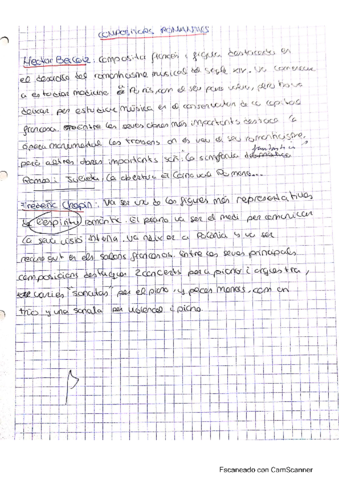 COMPOSITORS ROMÀNTICS
Hector Berlioz: compositor francès i figura destacada en
el desenvolupament romanticisme musical de segle XIX. Va començar
a estudiar medicina a París, com el seu pare volia, però ho va
deixar per estudiar música en el conservatori de la capital
francesa. entre les seves obres més importants destaca "la
òpera monumental Les troians on es veu el seu romanticisme,
però altres obres importants són: la simfonia fantàstica
Romeo i Julieta, la obertura El Carnaval Romano...
Frederic Chopin: Va ser una de les figures més representatives
de l'esperit romàntic. El piano va ser el medi per comunicar
la seva visió íntima. va néixer a Polònia i va ser
recongut en els salons francesos. Entre les seves principals
composicions destaquen 2 concerts per a piano i orquestra,
varies "sonatas" per el piano, y peces menors, com un
trio y una sonata per violoncel i piano.
Escaneado con CamScanner